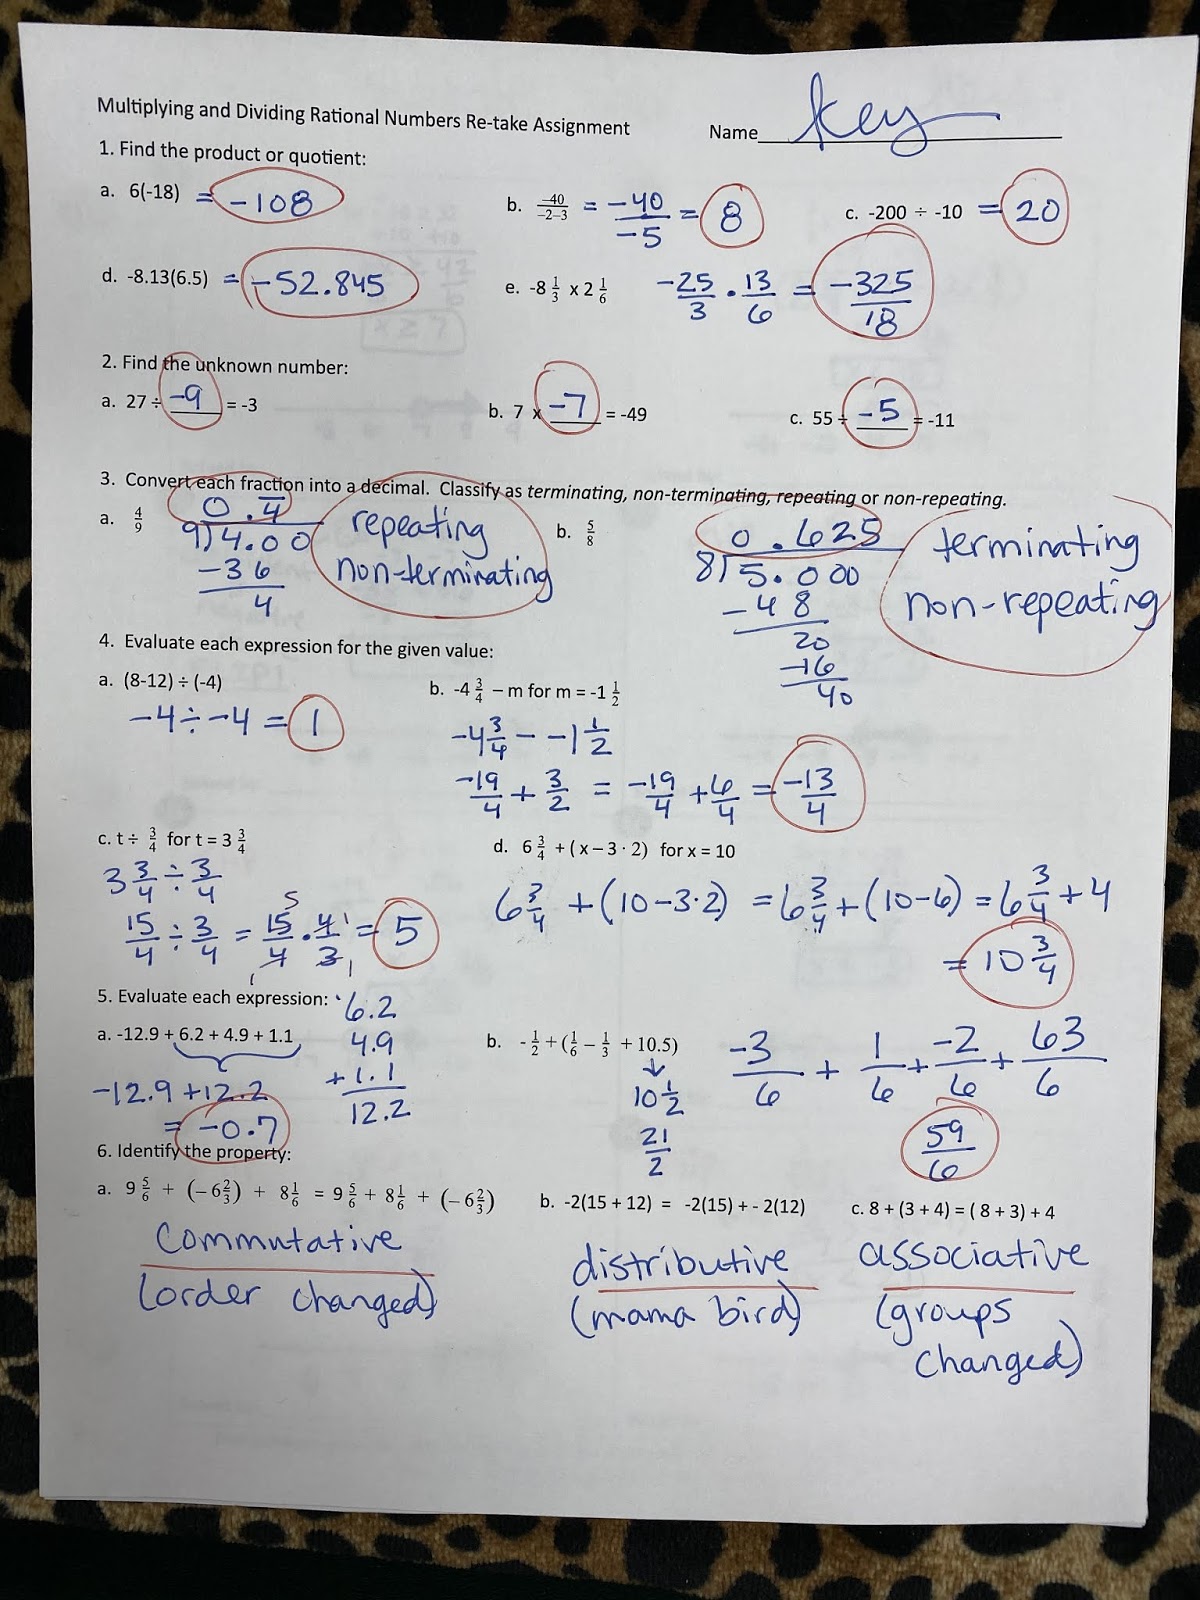 Multiplying and Dividing Rational Numbers Re-take Assignment Name key
1. Find the product or quotient:
a. 6(-18) = -108 b. -40/-2-3 = -40/-5 = 8 c. -200 ÷ -10 = 20
d. -8.13(6.5) = -52.845 e. -8 1/3 x 2 1/6 -25/3 · 13/6 = -325/18
2. Find the unknown number:
a. 27 ÷ -9 = -3 b. 7 x -7 = -49 c. 55 ÷ -5 = -11
3. Convert each fraction into a decimal. Classify as terminating, non-terminating, repeating or non-repeating.
a. 4/9 0.4̅ repeating b. 5/8 0.625 terminating
9)4.00 non-terminating 8)5.000 non-repeating
-36 -48
4 20
-16
40
4. Evaluate each expression for the given value:
a. (8-12) ÷ (-4) b. -4 3/4 – m for m = -1 1/2
-4 ÷ -4 = 1 -4 3/4 - -1 1/2
-19/4 + 3/2 = -19/4 + 6/4 = -13/4
c. t ÷ 3/4 for t = 3 3/4 d. 6 3/4 + ( x – 3 · 2) for x = 10
3 3/4 ÷ 3/4 6 3/4 + (10-3·2) = 6 3/4 + (10-6) = 6 3/4 + 4
5
15/4 ÷ 3/4 = 15/4 · 4/3 1 = 5 = 10 3/4
1 1
5. Evaluate each expression: 6.2
a. -12.9 + 6.2 + 4.9 + 1.1 4.9 b. - 1/2 + (1/6 – 1/3 + 10.5) -3/6 + 1/6 + -2/6 + 63/6
-12.9 + 12.2 +1.1 10 1/2
= -0.7 12.2 21/2 59/6
6. Identify the property:
a. 9 5/6 + (-6 2/3) + 8 1/6 = 9 5/6 + 8 1/6 + (-6 2/3) b. -2(15 + 12) = -2(15) + - 2(12) c. 8 + (3 + 4) = ( 8 + 3) + 4
commutative distributive associative
(order changed) (mama bird) (groups
changed)